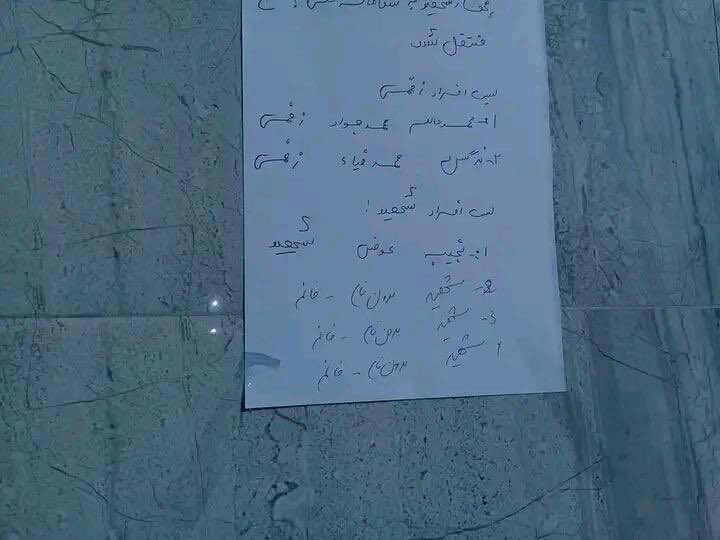 منتقل شد
لیس افراد زخمی
۱- محمد قاسم محمد جواد زخمی
۲- نرگس محمد ضیاء زخمی
لیس افراد شهید!
۱- نجیب عوض شهید
2- شهید بدون نام - خانم
3- شهید بدون نام - خانم
۴ شهید بدون نام - خانم